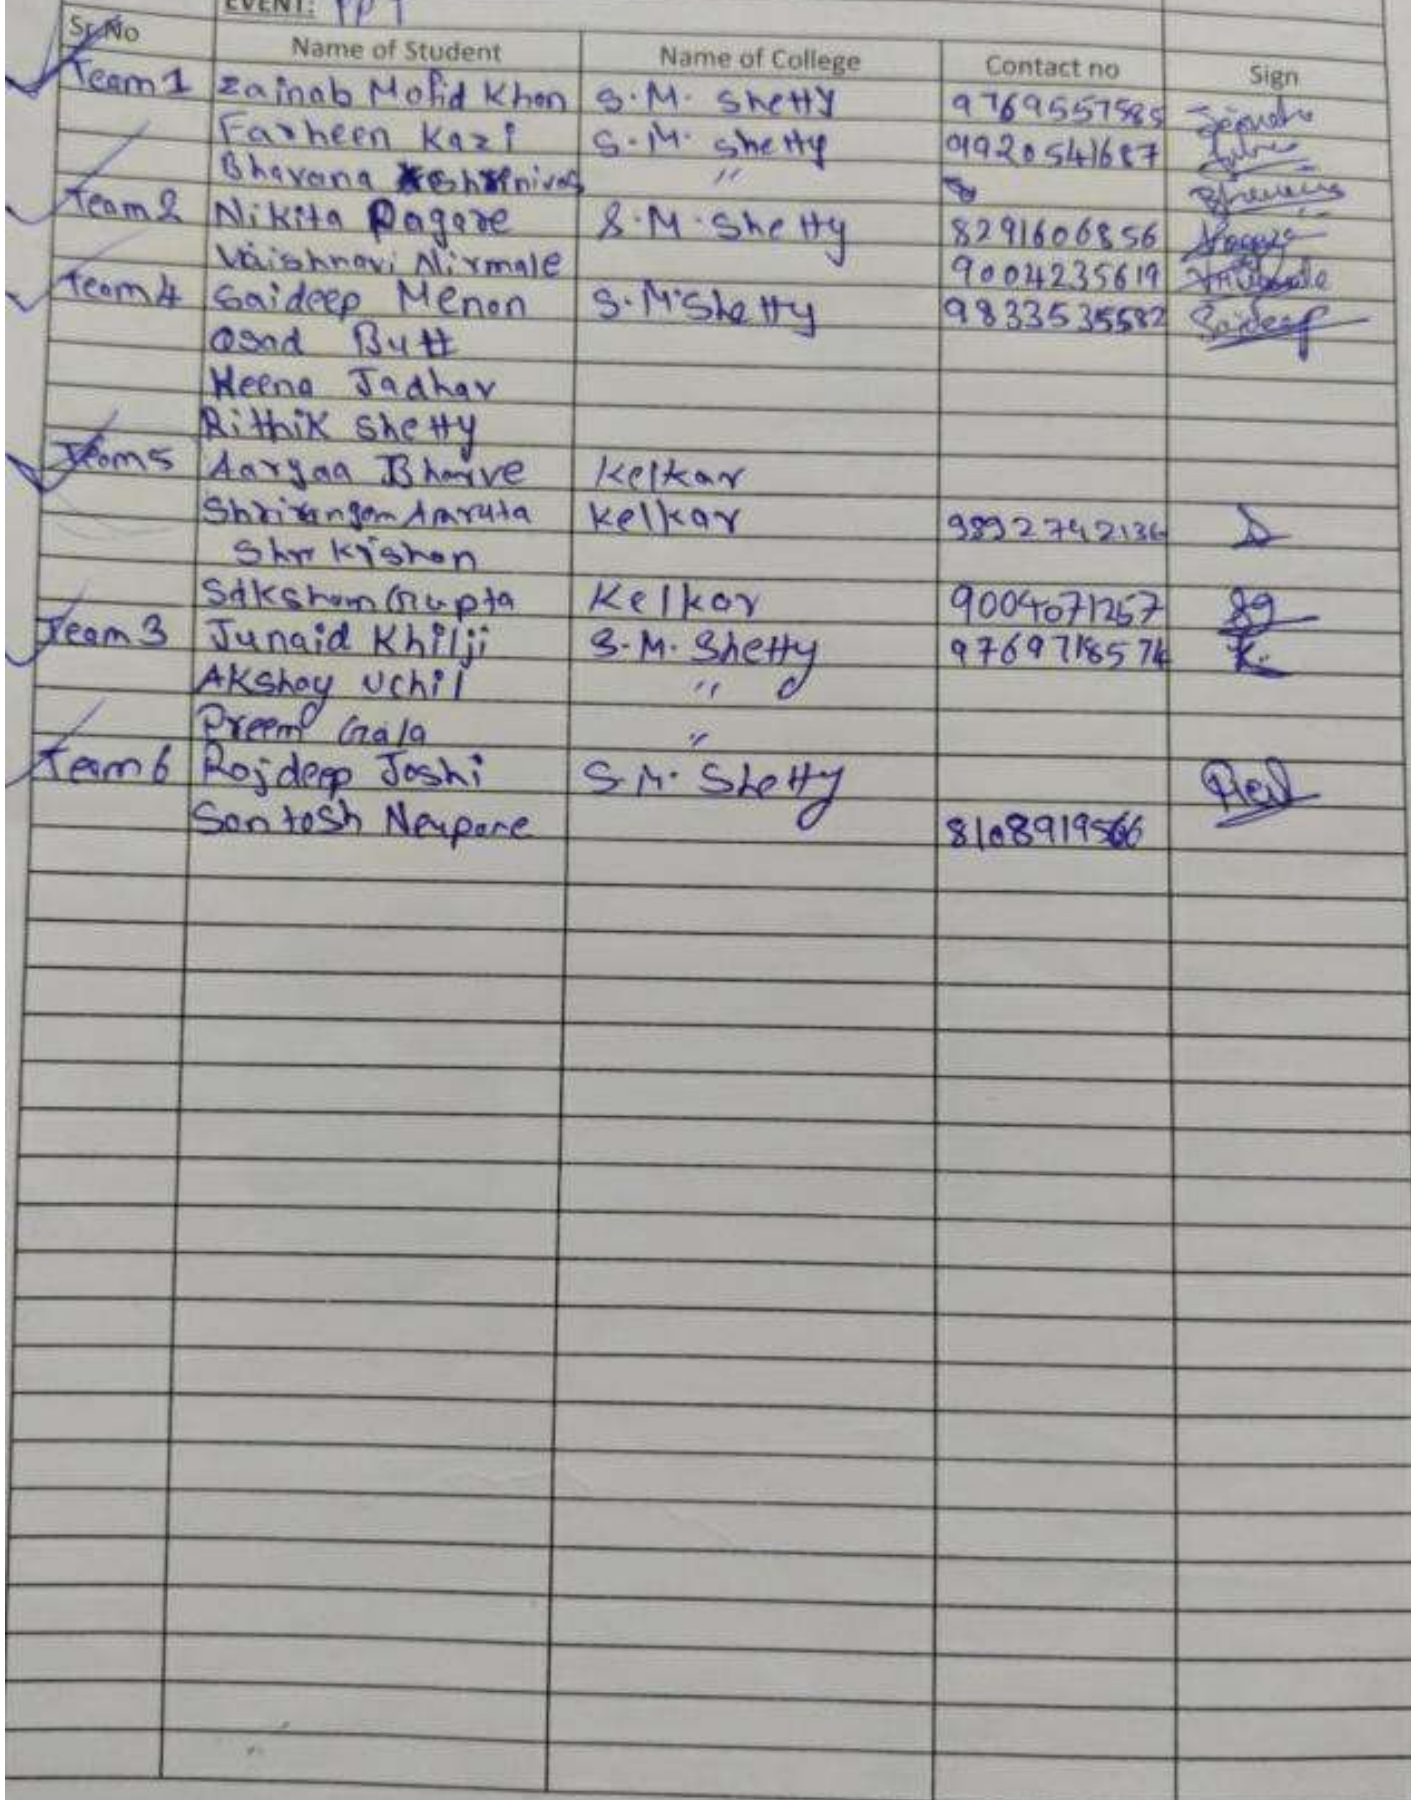 EVENT: PPT
Sr.No Name of Student Name of College Contact no Sign
Team 1 Zainab Mofid Khan S.M. Shetty 9769557585
Farheen Kazi S.M. Shetty 9920541687
Bhavana "
Team 2 Nikita Pagare S.M. Shetty 8291606856
Vaishnavi Nirmale 9004235619
Team 4 Saideep Menon S.M Shetty 9833535582 Saideep
Asad Butt
Heena Jadhav
Rithik Shetty
Team 5 Kelkar
Kelkar 9892742136
Shri Krishan
Saksham Gupta Kelkar 9004071267 Sg
Team 3 Junaid Khilji S.M. Shetty 9769718574 K.
Akshay Uchil "
Preem Gala "
Team 6 Rajdeep Joshi S.M. Shetty
Santosh Neupane 8108919566